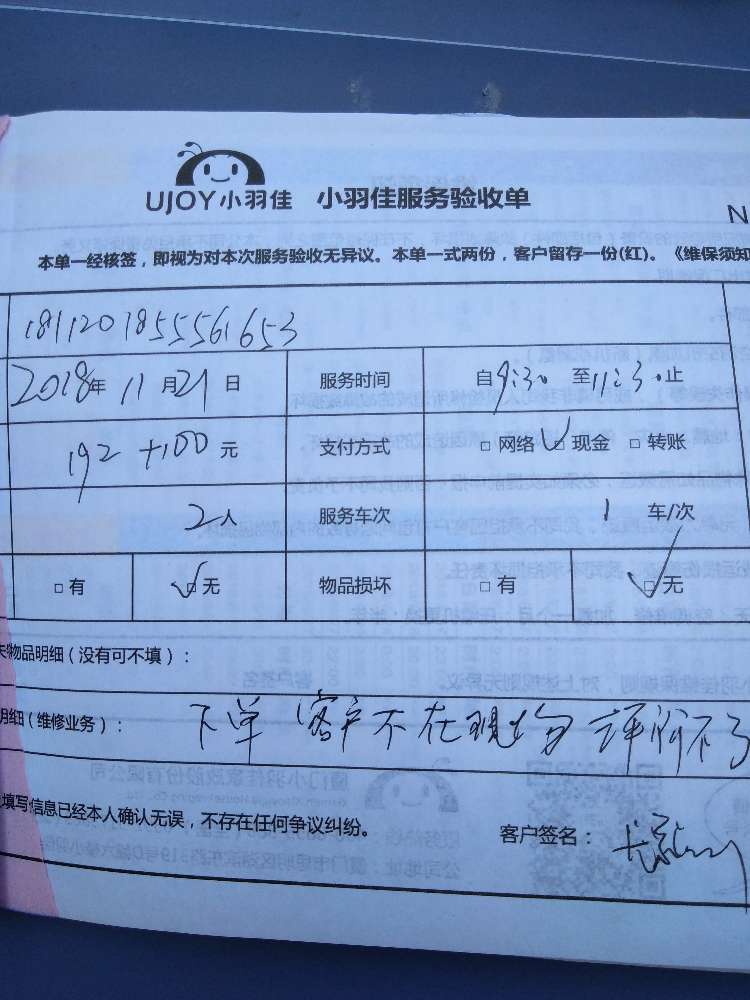 UJOY小羽佳 小羽佳服务验收单
N
本单一经核签，即视为对本次服务验收无异议。本单一式两份，客户留存一份(红)。《维保须知
1811201855561653
2018年 11月21日 服务时间 自9:30 至11:30止
192+100元 支付方式 □网络 □现金 □转账
2人 服务车次 1 车/次
□有 □无 物品损坏 □有 □无
物品明细（没有可不填）：
明细（维修业务）： 下单客户不在现场 评价不了
填写信息已经本人确认无误，不存在任何争议纠纷。 客户签名：